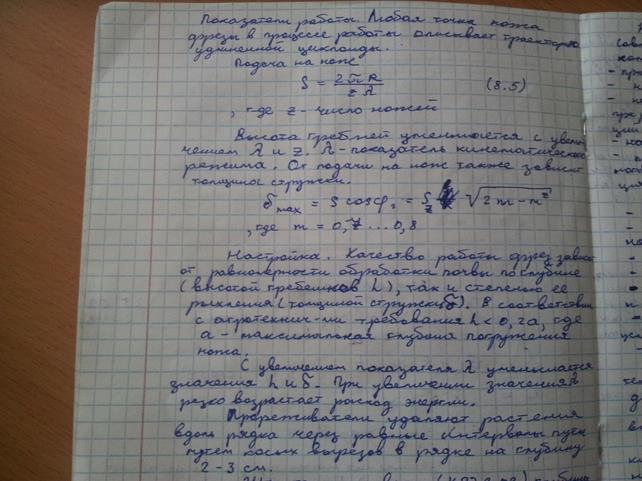 Показатели работы. Любая точка ножа
фрезы в процессе работы описывает траекторию
удлиненной циклоиды.
Подача на нож
S = 2πR / zλ (8.5)
, где z - число ножей
Высота гребней уменьшается с увели-
чением λ и z. λ - показатель кинематического
режима. От подачи на нож также зависит
толщина стружки.
δmax = S cosφ₁ = Sz √2m - m²
, где m = 0,7 ... 0,8
Настройка. Качество работы фрез зависит
от равномерности обработки почвы по глубине
(высотой гребешков h), так и степенью ее
рыхления (толщиной стружки δ). В соответствии
с агротехнич-ми требования h < 0,2a, где
a - максимальная глубина погружения
ножа.
С увеличением показателя λ уменьшается
значения h и δ. При увеличении значения λ
резко возрастает расход энергии.
Прореживатели удаляют растения
вдоль рядка через равные интервалы путем
путем косых вырезов в рядке на глубину
2 - 3 см.